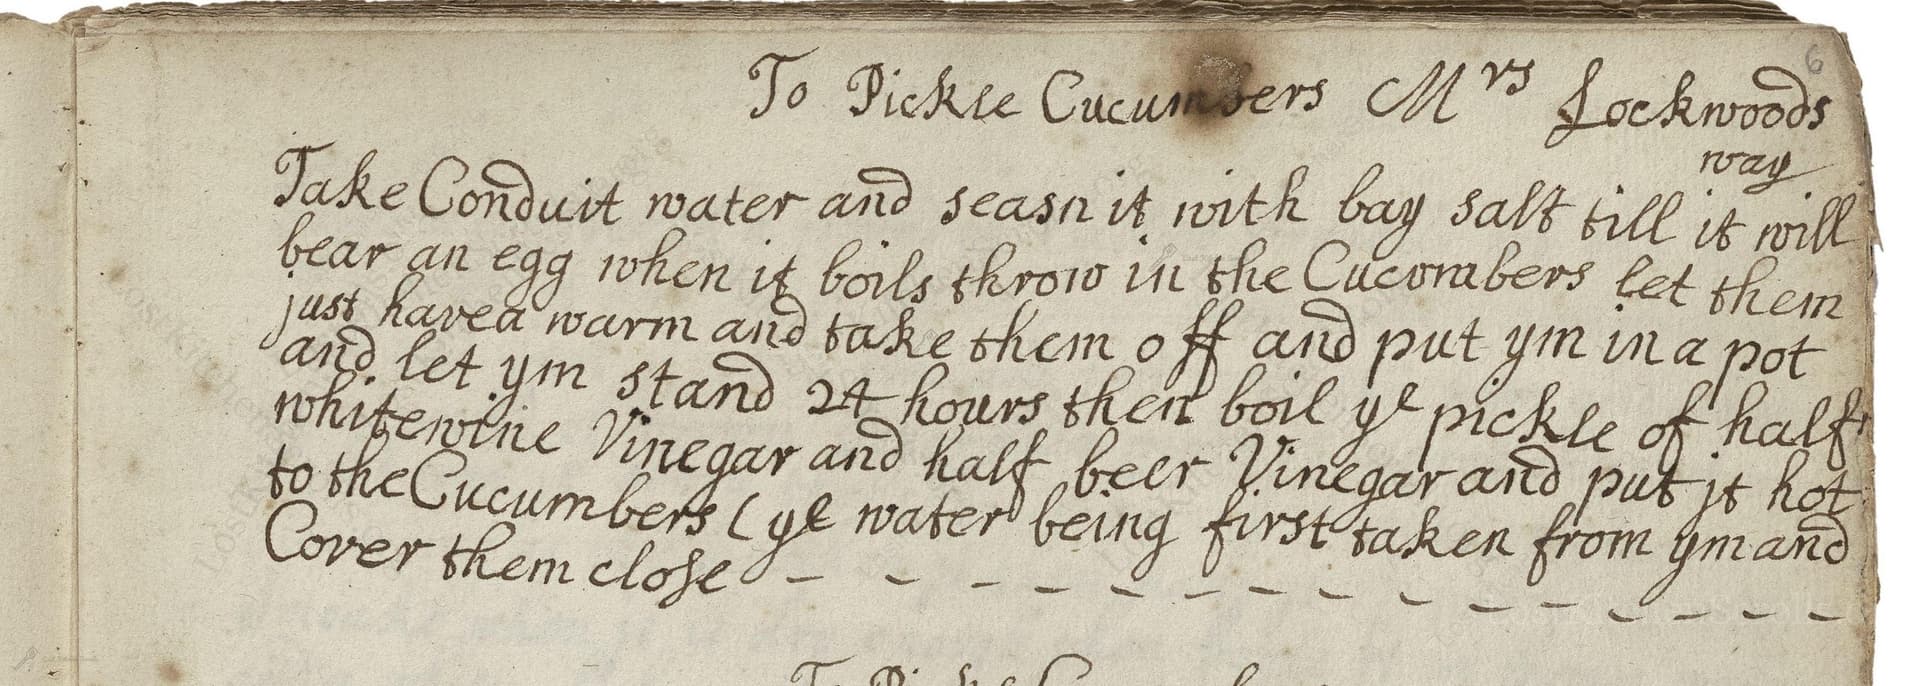 6
To Pickle Cucumbers Mrs Lockwoods
way
Take Conduit water and seasn it with bay salt till it will
bear an egg when it boils throw in the Cucumbers let them
just have a warm and take them off and put ym in a pot
and let ym stand 24 hours then boil ye pickle of half
whitewine Vinegar and half beer Vinegar and put it hot
to the Cucumbers (ye water being first taken from ym and
Cover them close